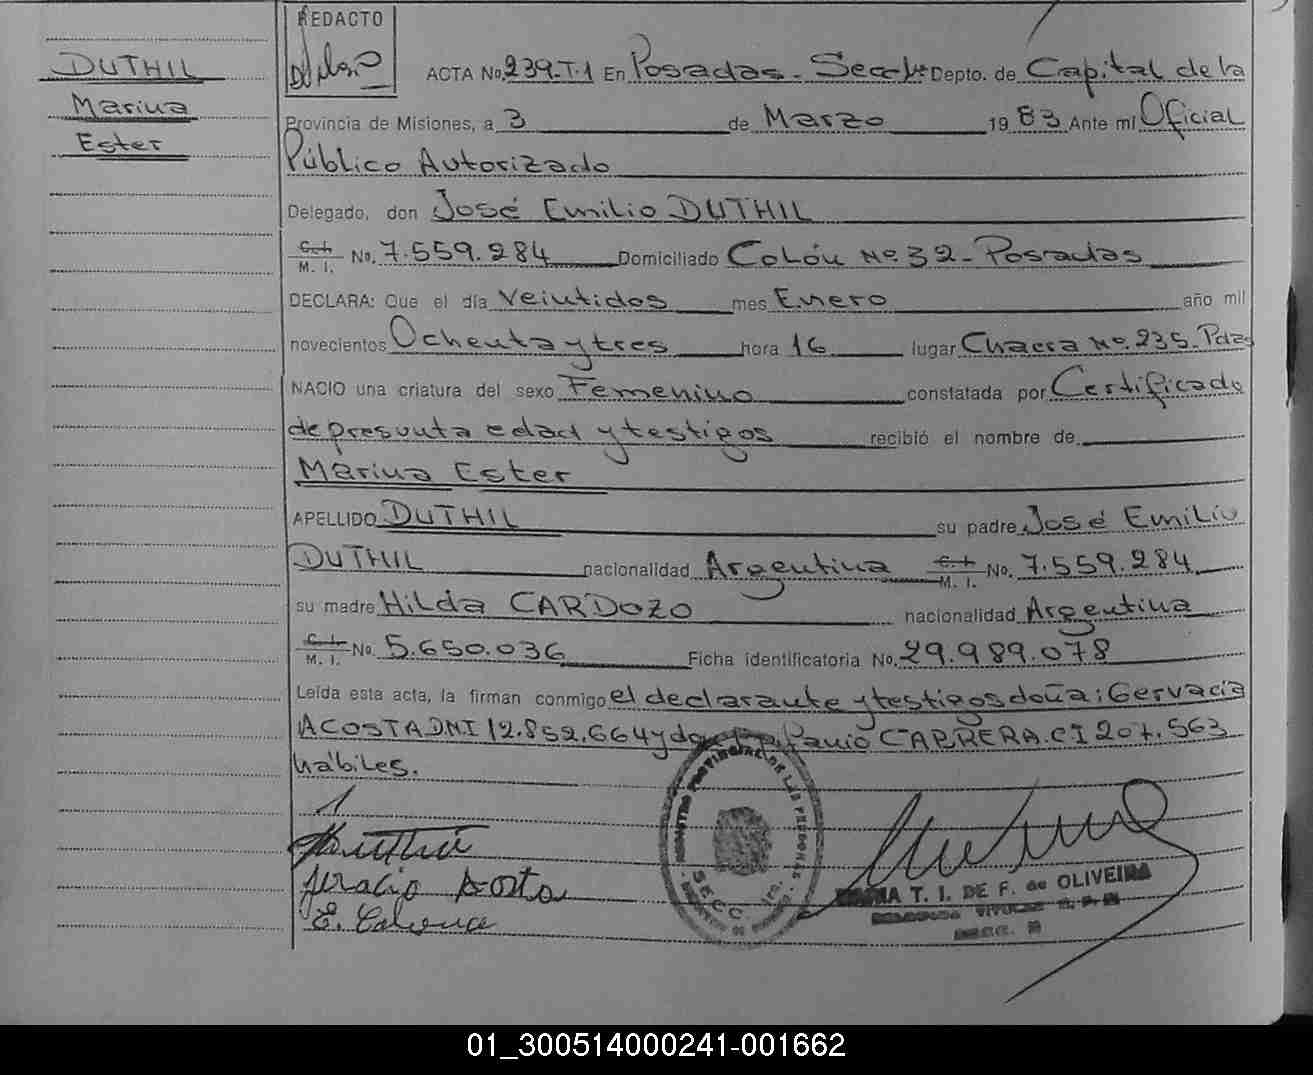 DUTHIL
Marina
Ester
REDACTO
ACTA No. 239-T-1 En Posadas - Secc 1ª Depto. de Capital de la
Provincia de Misiones, a 3 de Marzo 1983 Ante mí Oficial
Público Autorizado
Delegado, don José Emilio DUTHIL
C.I. M. I. No. 7.559.284 Domiciliado Colón Nº 32 - Posadas
DECLARA: Que el día Veintidos mes Enero año mil
novecientos Ochenta y tres hora 16 lugar Chacra Nº. 235. Pdas
NACIO una criatura del sexo Femenino constatada por Certificado
de presunta edad y testigos recibió el nombre de
Marina Ester
APELLIDO DUTHIL su padre José Emilio
DUTHIL nacionalidad Argentina C.I. M. I. No. 7.559.284
su madre Hilda CARDOZO nacionalidad Argentina
C.I. M. I. No. 5.650.036 Ficha identificatoria No. 29.989.078
Leída esta acta, la firman conmigo el declarante y testigos doña: Gervacia
ACOSTA DNI 12.852.664 y don CABRERA. CI 207.563
hábiles.
REGISTRO PROVINCIAL DE LAS PERSONAS
SECC. 1ra.
Acosta
E. Cabrera
T. I. DE F. de OLIVEIRA
01_300514000241-001662